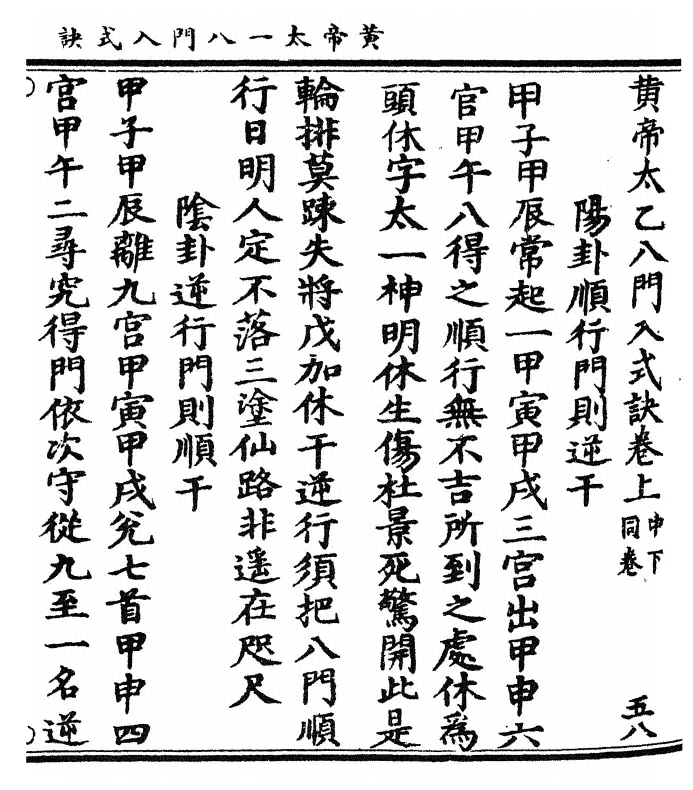 黄帝太一八門入式訣
黄帝太乙八門入式訣卷上 中下同卷 五八
陽卦順行門則逆干
甲子甲辰常起一甲寅甲戌三宫出甲申六
宫甲午八得之順行無不吉所到之處休為
頭休字太一神明休生傷杜景死驚開此是
輪排莫踈失將戊加休干逆行須把八門順
行日明人定不落三塗仙路非遥在咫尺
陰卦逆行門則順干
甲子甲辰離九宫甲寅甲戌兊七首甲申四
宫甲午二尋究得門依次守從九至一名逆